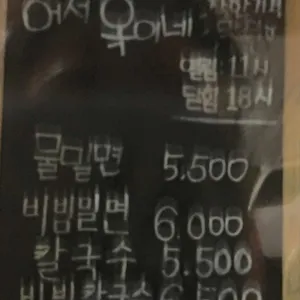 어서 옷이네
열림 11시
닫힘 18시
물밀면 5.500
비빔밀면 6.000
칼국수 5.500
비빔칼국수 6.500